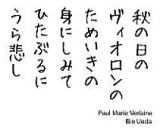 秋の日の
ヴィオロンの
ためいきの
身にしみて
ひたぶるに
うら悲し
Paul Marie Verlaine
Bin Ueda